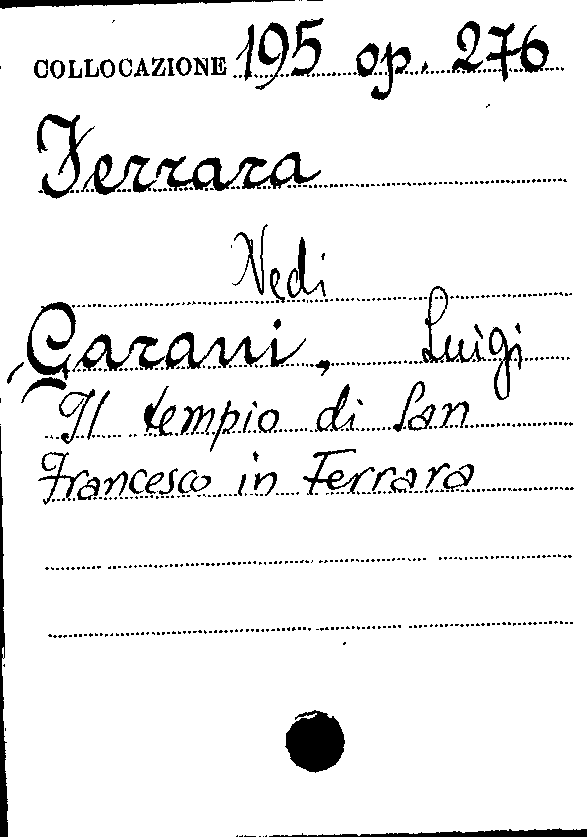 COLLOCAZIONE 195 op. 276
Ferrara
Vedi
Garani, Luigi
Il tempio di San
Francesco in Ferrara